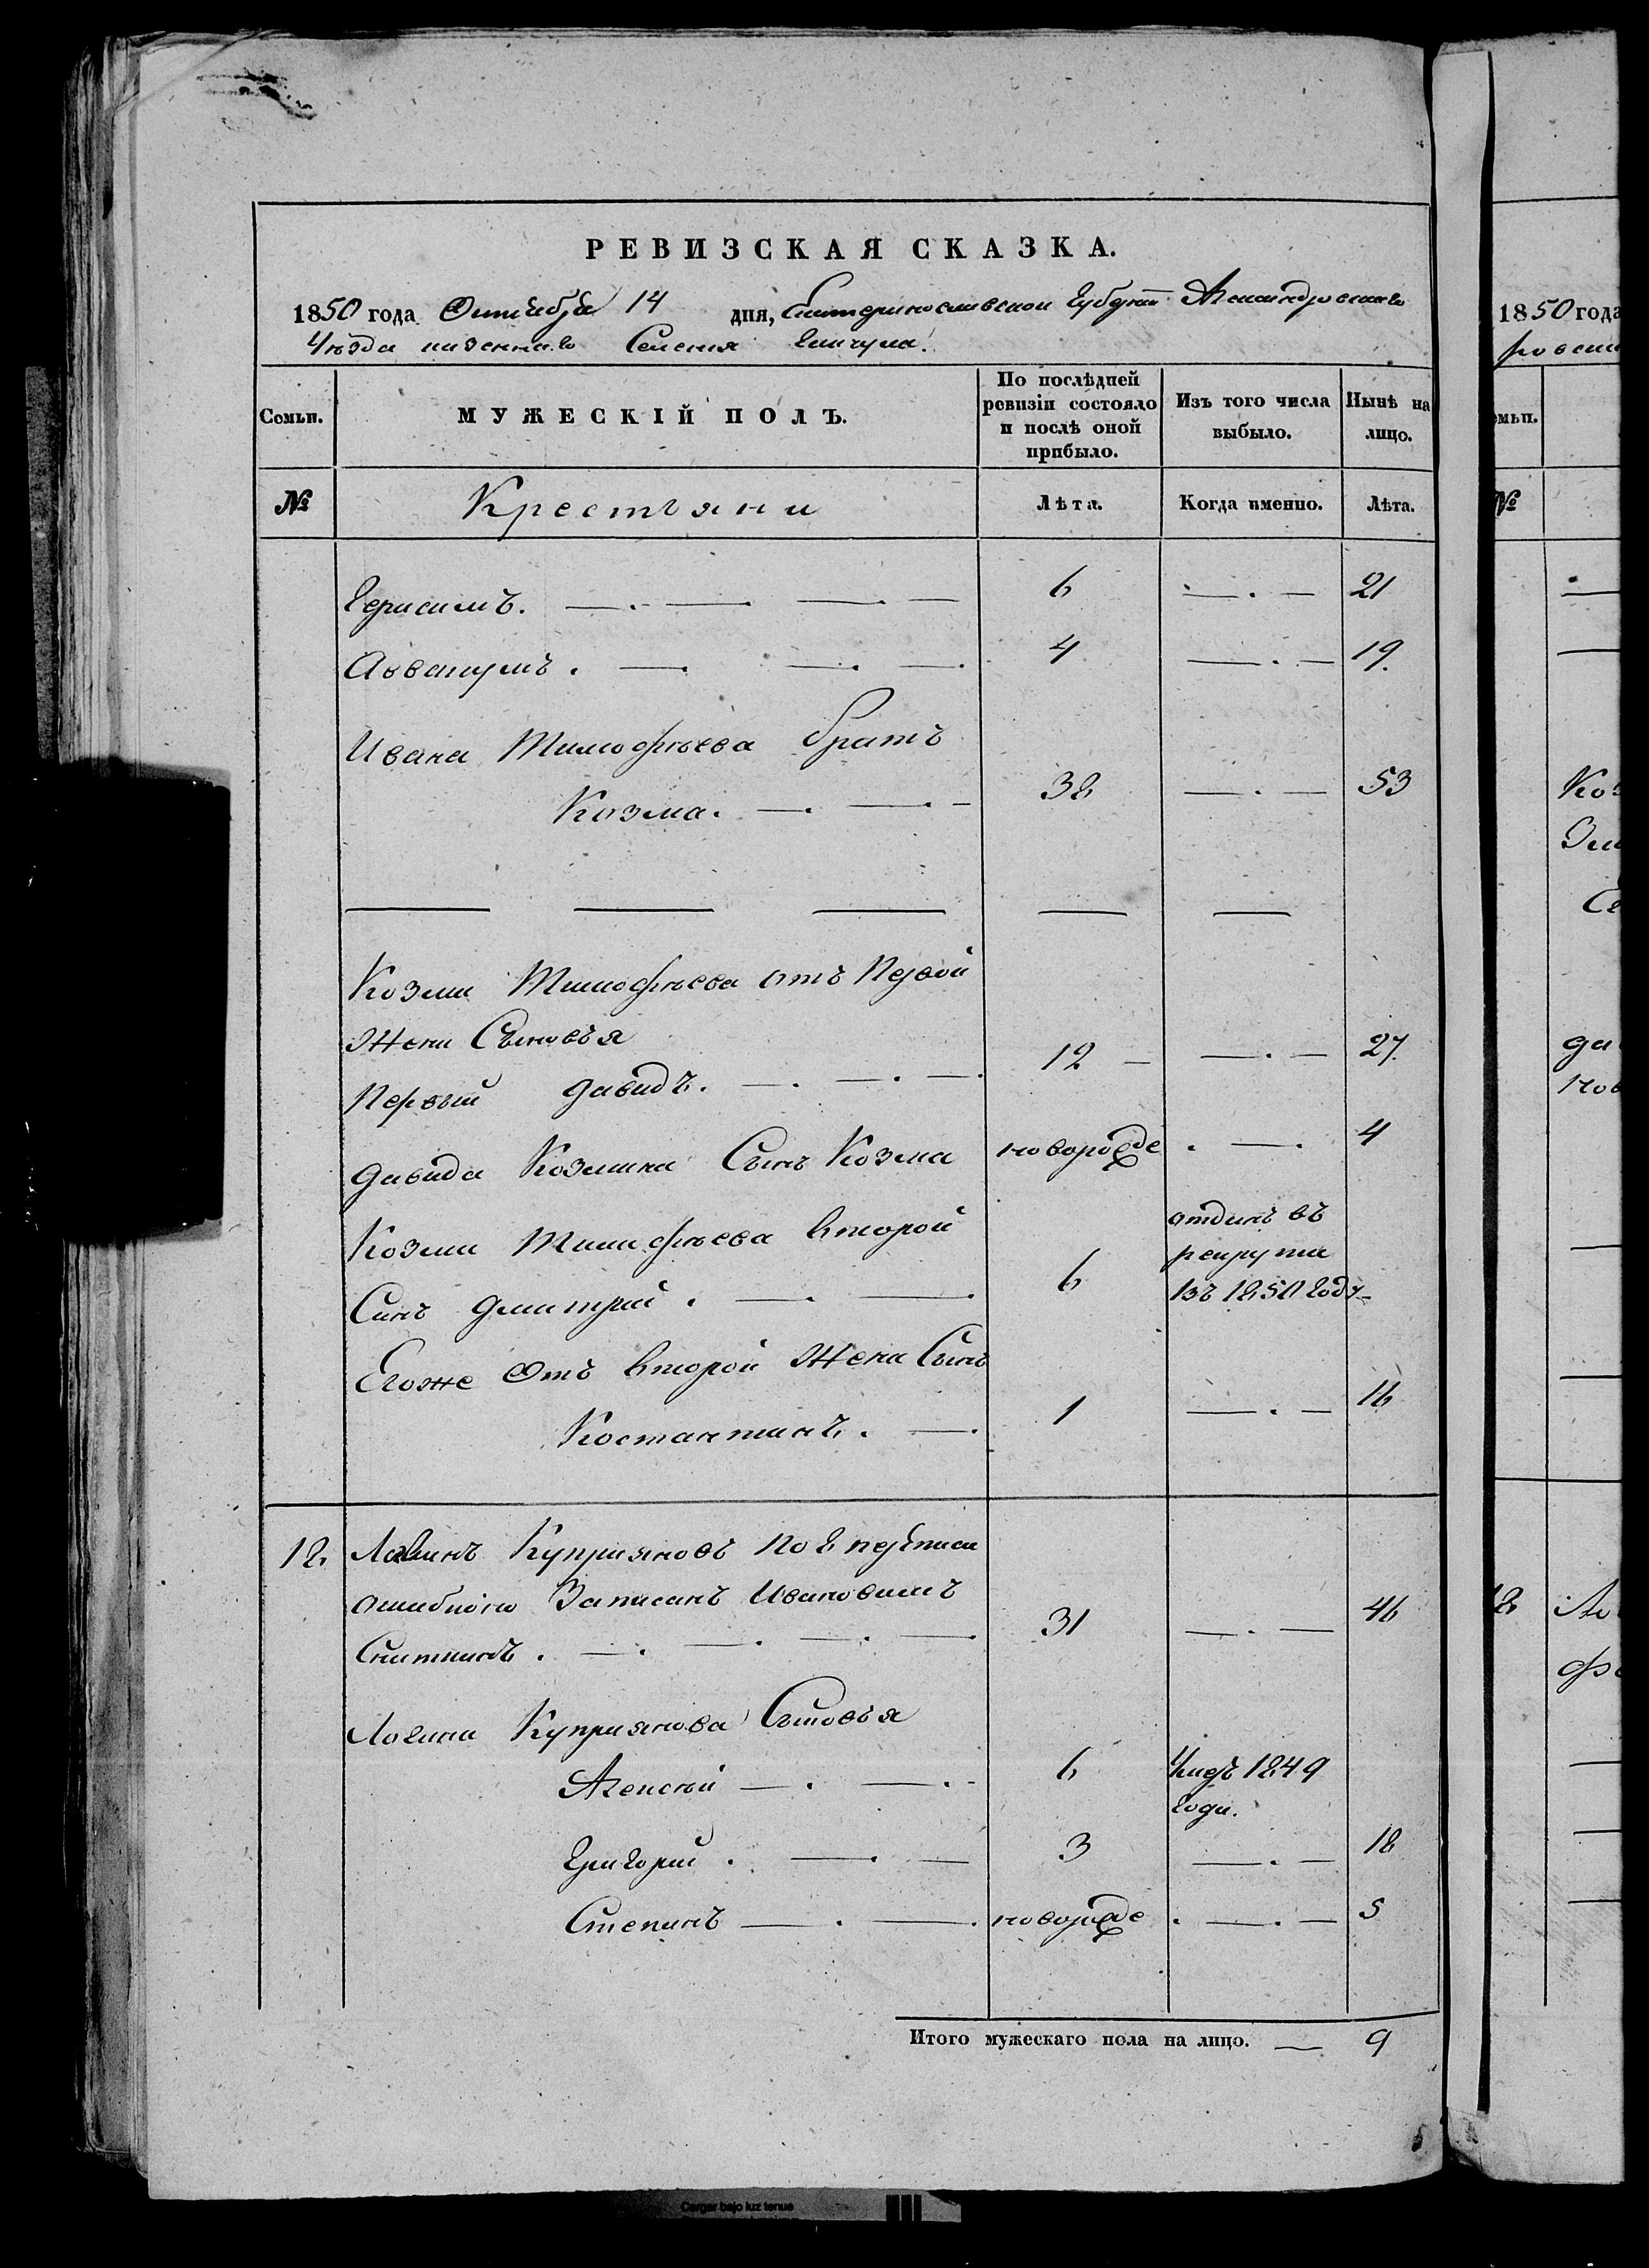 РЕВИЗСКАЯ СКАЗКА.
1850 года Октября 14 дня, Екатеринославской Губерніи Александровскаго
Уѣзда казеннаго Селенія Гайчула.
Семьи. МУЖЕСКІЙ ПОЛЪ. По послѣдней ревизіи состояло и послѣ оной прибыло. Изъ того числа выбыло. Нынѣ на лицо.
№ Крестьяни Лѣта. Когда именно. Лѣта.
Герасимъ. 6 21
Аввакумъ. 4 19.
Ивана Тимофѣева братъ
Козма. 38 53
Козми Тимофѣева отъ Первой
Жени Сыновья
Первый Давидъ. 12 27.
Давида Козмина Сынъ Козма новорожде 4
Козми Тимофѣева второй отданъ въ
рекрута
Синъ Дмитрий. 6 въ 1850 году
Егоже Отъ второй Жени Сынъ
Костантинъ. 1 16
12. Логвинъ Куприяновъ По 8 переписи
ошибкою Записанъ Ивановимъ
31 46
Логина Куприянова Сыновья
Алексѣй 6 Умеръ 1849
года.
Григорий. 3 18
Степанъ новорожде 5
Итого мужескаго пола на лицо. 9
1850 года
ровска
емьи.
№
Коз
Дав
нов
12
Cargar bajo luz tenue